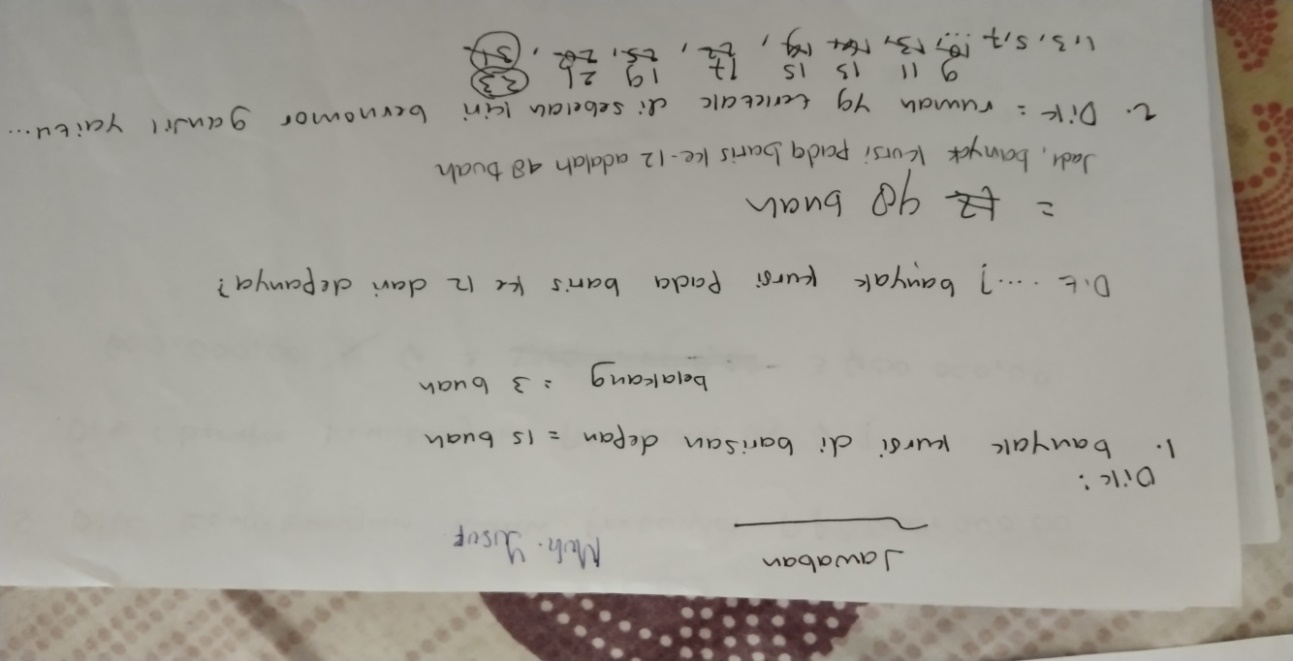 Jawaban
Moh. Yusuf
Dik:
1. banyak kursi di barisan depan = 15 buah
belakang = 3 buah
Dit ....? banyak kursi pada baris ke 12 dari depanya?
= 48 buah
Jadi, banyak kursi pada baris ke-12 adalah 48 buah
2. Dik = rumah yg terletak di sebelah kiri bernomor ganjil yaitu...
9 11 13 15 17 19 21 33
1, 3, 5, 7